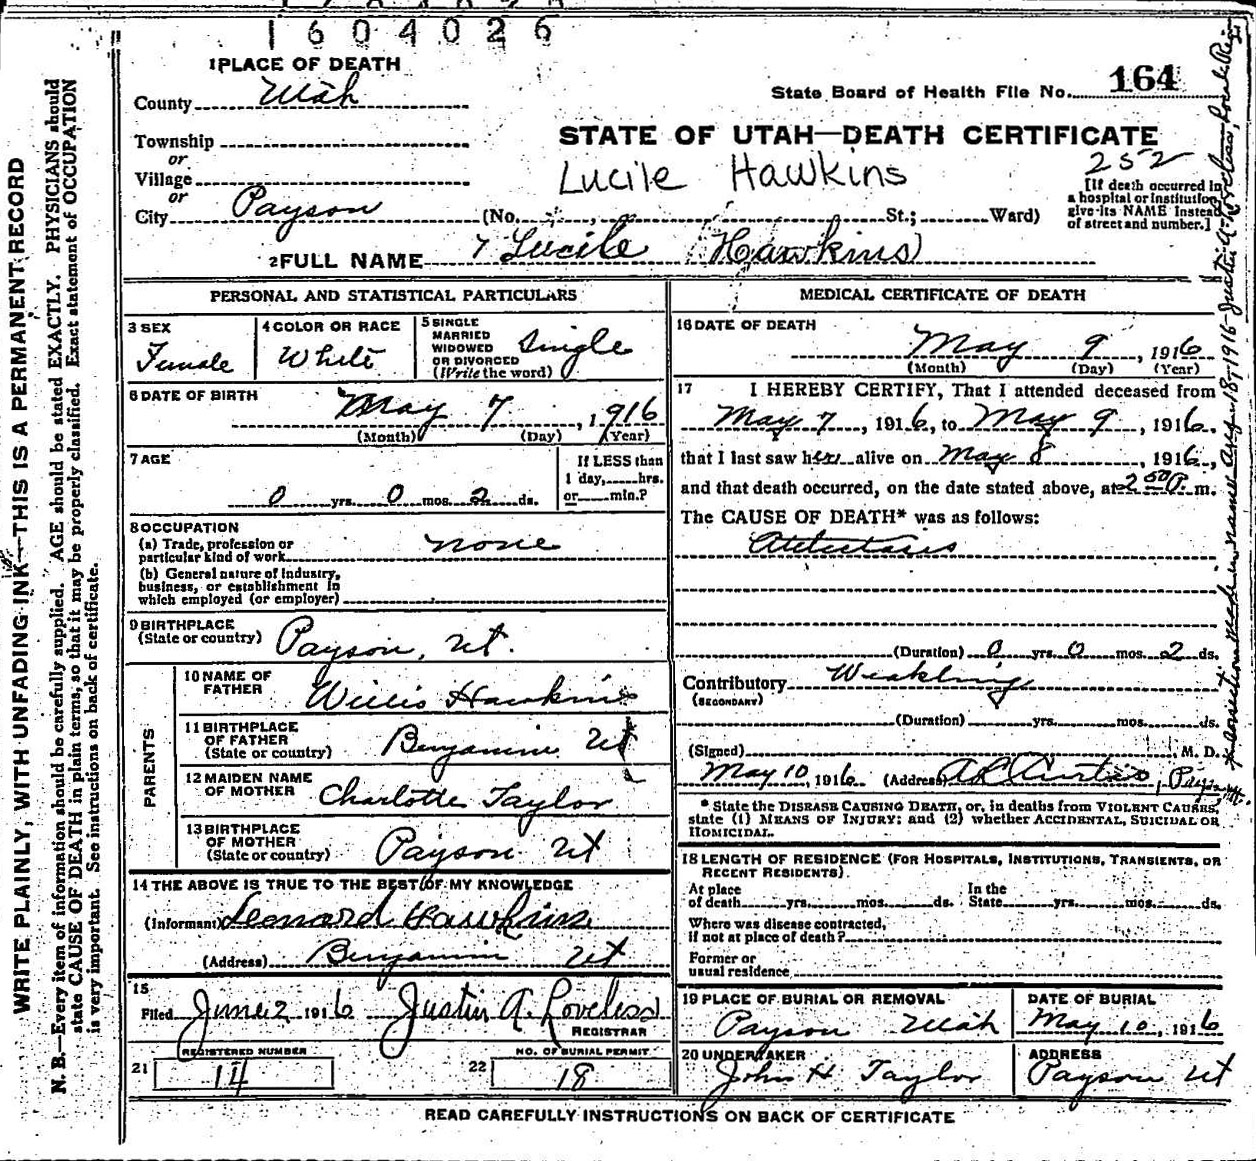 1604026
1 PLACE OF DEATH
County Utah
State Board of Health File No. 164
Township
STATE OF UTAH—DEATH CERTIFICATE
or
Village
Lucile Hawkins 252
or
City Payson (No. , St.; Ward)
[If death occurred in
a hospital or institution,
give its NAME instead
of street and number.]
2 FULL NAME Lucile (Hawkins)
PERSONAL AND STATISTICAL PARTICULARS
3 SEX
Female
4 COLOR OR RACE
White
5 SINGLE
MARRIED
WIDOWED
OR DIVORCED
(Write the word)
Single
6 DATE OF BIRTH
May 7, 1916
(Month) (Day) (Year)
7 AGE
0 yrs. 0 mos. 2 ds.
If LESS than
1 day, hrs.
or min.?
8 OCCUPATION
(a) Trade, profession or
particular kind of work none
(b) General nature of industry,
business, or establishment in
which employed (or employer)
9 BIRTHPLACE
(State or country) Payson, Ut.
PARENTS
10 NAME OF
FATHER Willis Hawkins
11 BIRTHPLACE
OF FATHER
(State or country) Benjamin Ut
12 MAIDEN NAME
OF MOTHER Charlotte Taylor
13 BIRTHPLACE
OF MOTHER
(State or country) Payson Ut
14 THE ABOVE IS TRUE TO THE BEST OF MY KNOWLEDGE
(Informant) Leonard Hawkins
(Address) Benjamin Ut
15
Filed June 2 1916 Justin A. Loveless
REGISTRAR
REGISTERED NUMBER
21 14
NO. OF BURIAL PERMIT
22 18
MEDICAL CERTIFICATE OF DEATH
16 DATE OF DEATH
May 9, 1916
(Month) (Day) (Year)
17 I HEREBY CERTIFY, That I attended deceased from
May 7, 1916, to May 9, 1916.
that I last saw her alive on May 8, 1916,
and that death occurred, on the date stated above, at 2 50 P. m.
The CAUSE OF DEATH* was as follows:
Atelectasis
(Duration) 0 yrs. 0 mos. 2 ds.
Contributory Weakling
(SECONDARY)
(Duration) yrs. mos. ds.
(Signed) M. D.
May 10, 1916 (Address) A L Curtis, Payson Ut.
* State the DISEASE CAUSING DEATH, or, in deaths from VIOLENT CAUSES,
state (1) MEANS OF INJURY; and (2) whether ACCIDENTAL, SUICIDAL OR
HOMICIDAL.
18 LENGTH OF RESIDENCE (FOR HOSPITALS, INSTITUTIONS, TRANSIENTS, OR
RECENT RESIDENTS).
At place
of death yrs. mos. ds.
In the
State yrs. mos. ds.
Where was disease contracted,
if not at place of death?
Former or
usual residence
19 PLACE OF BURIAL OR REMOVAL
Payson Utah
DATE OF BURIAL
May 10, 1916
20 UNDERTAKER
John H Taylor
ADDRESS
Payson Ut
READ CAREFULLY INSTRUCTIONS ON BACK OF CERTIFICATE
WRITE PLAINLY, WITH UNFADING INK—THIS IS A PERMANENT RECORD
N. B.—Every item of information should be carefully supplied. AGE should be stated EXACTLY. PHYSICIANS should
state CAUSE OF DEATH in plain terms, so that it may be properly classified. Exact statement of OCCUPATION
is very important. See instructions on back of certificate.
* Correction made in name Aug 18, 1916 - Justin A. Loveless, Local Reg